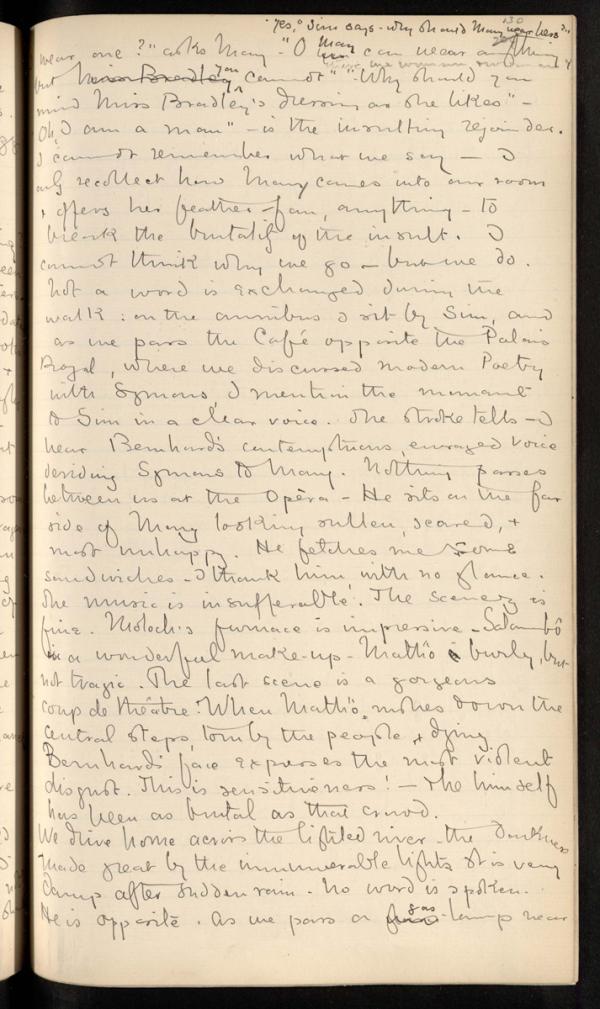 130
"Yes," Sim says - why should Mary wear hers
wear one?" asks Mary - "O Mary can wear anything
but Miss Bradley you cannot" "Why should you
mind Miss Bradley's dressing as she likes" -
"Oh, I am a man" - is the insulting rejoinder.
I cannot remember what we say - I
only recollect how Mary comes into our room
& offers her feather-fan, anything - to
break the brutality of the insult. I
cannot think why we go - but we do.
Not a word is exchanged during the
walk: on the omnibus I sit by Sim, and
as we pass the Café opposite the Palais
Royal, where we discussed modern Poetry
with Symons, I mention the moment
to Sim in a clear voice. The stroke tells - I
hear Bernhard's contemptuous, enraged voice
deriding Symons to Mary. Nothing passes
between us at the Opèra - He sits on the far
side of Mary looking sullen, scared, +
most unhappy. He fetches me some
sandwiches - I thank him with no glance.
The music is insufferable. The scenery is
fine. Moloch's furnace is impressive - Salambô
in a wonderful make-up - Mathô burly, but
not tragic. The last scene is a gorgeous
coup de théâtre. When Mathô rushes down the
central steps, torn by the people, & dying
Bernhard's face expresses the most violent
disgust. This is sensitiveness! - & he himself
has been as brutal as that crowd.
We drive home across the lighted river - the darkness
made great by the innumerable lights. It is very
damp after sudden rain. No word is spoken.
He is opposite. As we pass a gas-lamp near